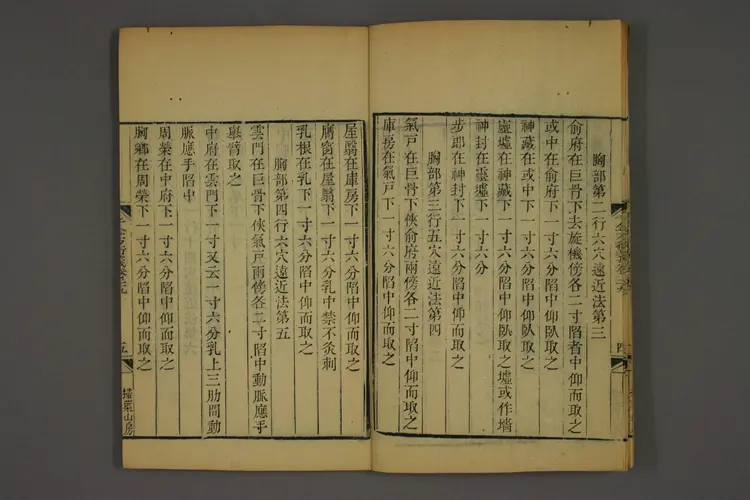 胸部第二行六穴遠近法第三
俞府在巨骨下去旋機傍各二寸陷者中仰而取之
或中在俞府下一寸六分陷中仰臥取之
神藏在或中下一寸六分陷中仰臥取之
靈墟在神藏下一寸六分陷中仰臥取之墟或作墻
神封在靈墟下一寸六分
步郎在神封下一寸六分陷中仰而取之
胸部第三行五穴遠近法第四
氣戸在巨骨下俠俞府兩傍各二寸陷中仰而取之
庫房在氣戸下一寸六分陷中仰而取之
屋翳在庫房下一寸六分陷中仰而取之
膺窗在屋翳下一寸六分乳中禁不灸刺
乳根在乳下一寸六分陷中仰而取之
胸部第四行六穴遠近法第五
雲門在巨骨下俠氣戸兩傍各二寸陷中動脈應手
舉臂取之
中府在雲門下一寸又云一寸六分乳上三肋間動
脈應手陷中
周榮在中府下一寸六分陷中仰而取之
胸鄉在周榮下一寸六分陷中仰而取之
五
掃葉山房